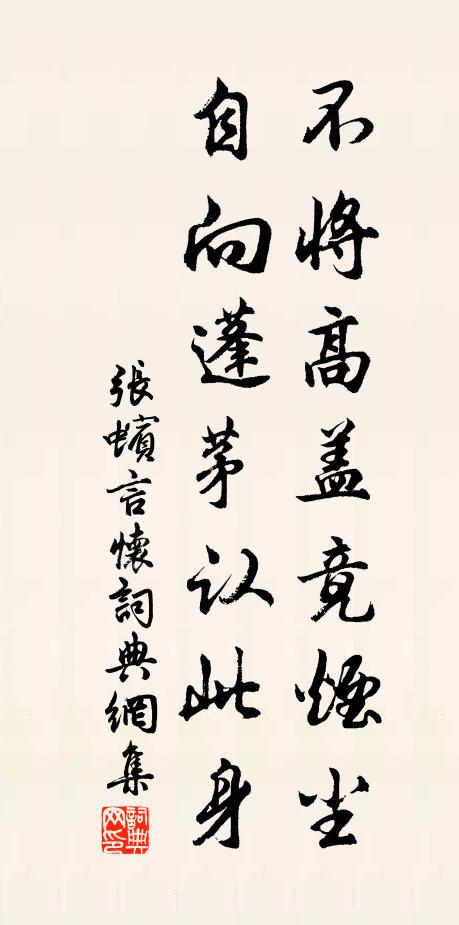 不将高盖竞煙尘
自向蓬茅认此身
張蠙言懷詞典網集
詞典網印